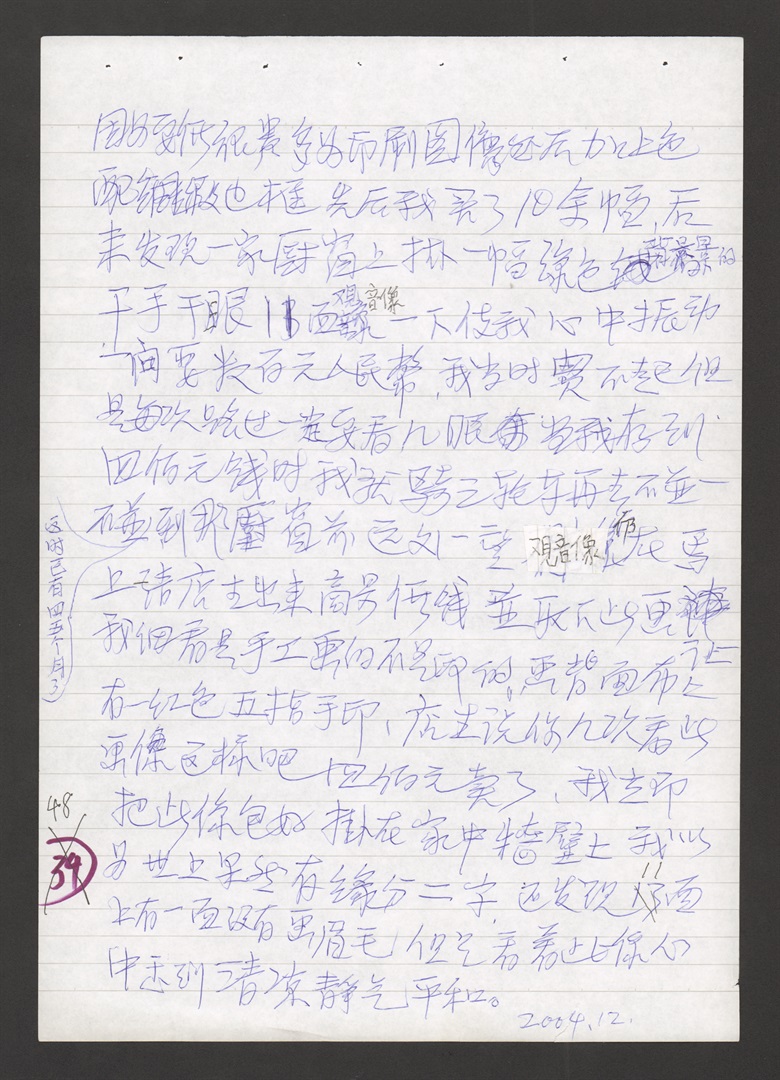 因为要价很贵多为印刷图像然后加上色
配绸缎边框先后我买了10余幅,后
来发现一家厨窗上掛一幅绿色背景的
千手千眼11面観音像一下使我心中振动
一问要数百元人民幣,我当时買不起但
是每次路过一定要看几眼当我存到
四佰元钱时我就骑三轮车再去不並一
不並到那厨窗前远处一望観音像仍在马
上请店主出来商量价钱並取下此画
我细看是手工画的不是印的,画背面布上
有一红色五指手印,店主说你几次看此
画像这样吧四佰元卖了,我立即
把此像包好掛在家中牆壁上我以
为世上果然有缘分二字,还发现11面
上有一面没有画眉毛但是看着此像心
中感到清凉静气平和。
2004.12.
(这时已有四五个月了)
48
39